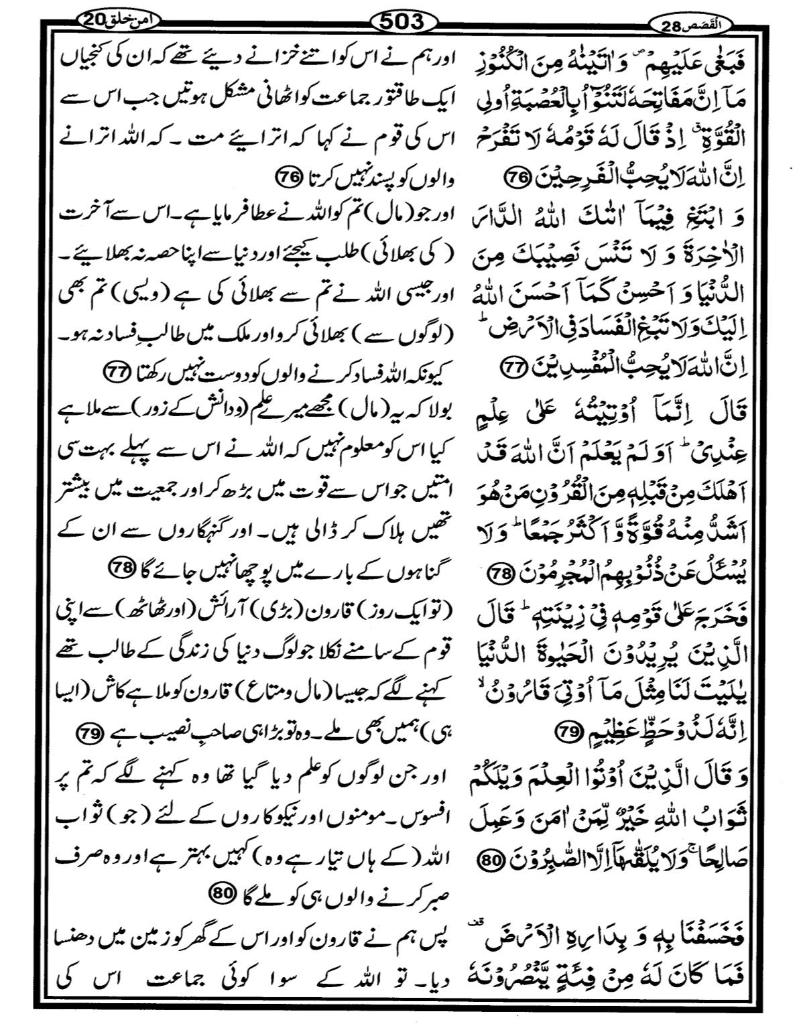 القصص 28
503
امن خلق 20
فَبَغٰى عَلَيْهِمْ ۪ وَاٰتَيْنٰهُ مِنَ الْكُنُوْزِ
مَاۤ اِنَّ مَفَاتِحَهٗ لَتَنُوْٓاُ بِالْعُصْبَةِ اُولِي
الْقُوَّةِ ۗ اِذْ قَالَ لَهٗ قَوْمُهٗ لَا تَفْرَحْ
اِنَّ اللّٰهَ لَا يُحِبُّ الْفَرِحِيْنَ 76
وَ ابْتَغِ فِيْمَاۤ اٰتٰىكَ اللّٰهُ الدَّارَ
الْاٰخِرَةَ وَ لَا تَنْسَ نَصِيْبَكَ مِنَ
الدُّنْيَا وَ اَحْسِنْ كَمَاۤ اَحْسَنَ اللّٰهُ
اِلَيْكَ وَلَا تَبْغِ الْفَسَادَ فِي الْاَرْضِ ؕ
اِنَّ اللّٰهَ لَا يُحِبُّ الْمُفْسِدِيْنَ 77
قَالَ اِنَّمَاۤ اُوْتِيْتُهٗ عَلٰى عِلْمٍ
عِنْدِيْ ؕ اَوَ لَمْ يَعْلَمْ اَنَّ اللّٰهَ قَدْ
اَهْلَكَ مِنْ قَبْلِهٖ مِنَ الْقُرُوْنِ مَنْ هُوَ
اَشَدُّ مِنْهُ قُوَّةً وَّ اَكْثَرُ جَمْعًا ؕ وَ لَا
يُسْـَٔلُ عَنْ ذُنُوْبِهِمُ الْمُجْرِمُوْنَ 78
فَخَرَجَ عَلٰى قَوْمِهٖ فِيْ زِيْنَتِهٖ ؕ قَالَ
الَّذِيْنَ يُرِيْدُوْنَ الْحَيٰوةَ الدُّنْيَا
يٰلَيْتَ لَنَا مِثْلَ مَاۤ اُوْتِيَ قَارُوْنُ ۙ
اِنَّهٗ لَذُوْ حَظٍّ عَظِيْمٍ 79
وَ قَالَ الَّذِيْنَ اُوْتُوا الْعِلْمَ وَيْلَكُمْ
ثَوَابُ اللّٰهِ خَيْرٌ لِّمَنْ اٰمَنَ وَ عَمِلَ
صَالِحًا ۚ وَلَا يُلَقّٰىهَاۤ اِلَّا الصّٰبِرُوْنَ 80
فَخَسَفْنَا بِهٖ وَ بِدَارِهِ الْاَرْضَ ۫
فَمَا كَانَ لَهٗ مِنْ فِئَةٍ يَّنْصُرُوْنَهٗ
اور ہم نے اس کو اتنے خزانے دیئے تھے کہ ان کی کنجیاں
ایک طاقتور جماعت کو اٹھانی مشکل ہوتیں جب اس سے
اس کی قوم نے کہا کہ اترایئے مت ۔ کہ اللہ اترانے
والوں کو پسند نہیں کرتا 76
اور جو (مال) تم کو اللہ نے عطا فرمایا ہے۔ اس سے آخرت
(کی بھلائی) طلب کیجئے اور دنیا سے اپنا حصہ نہ بھلایئے۔
اور جیسی اللہ نے تم سے بھلائی کی ہے (ویسی) تم بھی
(لوگوں سے) بھلائی کرو اور ملک میں طالبِ فساد نہ ہو۔
کیونکہ اللہ فساد کرنے والوں کو دوست نہیں رکھتا 77
بولا کہ یہ (مال) مجھے میرے علم (ودانش کے زور) سے ملا ہے
کیا اس کو معلوم نہیں کہ اللہ نے اس سے پہلے بہت سی
امتیں جو اس سے قوت میں بڑھ کر اور جمعیت میں بیشتر
تھیں ہلاک کر ڈالی ہیں۔ اور گنہگاروں سے ان کے
گناہوں کے بارے میں پوچھا نہیں جائے گا 78
(تو ایک روز) قارون (بڑی) آرائش (اور ٹھاٹھ) سے اپنی
قوم کے سامنے نکلا جو لوگ دنیا کی زندگی کے طالب تھے
کہنے لگے کہ جیسا (مال ومتاع) قارون کو ملا ہے کاش (ایسا
ہی) ہمیں بھی ملے۔ وہ تو بڑا ہی صاحبِ نصیب ہے 79
اور جن لوگوں کو علم دیا گیا تھا وہ کہنے لگے کہ تم پر
افسوس۔ مومنوں اور نیکوکاروں کے لئے (جو) ثواب
اللہ (کے ہاں تیار ہے وہ) کہیں بہتر ہے اور وہ صرف
صبر کرنے والوں ہی کو ملے گا 80
پس ہم نے قارون کو اور اس کے گھر کو زمین میں دھنسا
دیا۔ تو اللہ کے سوا کوئی جماعت اس کی